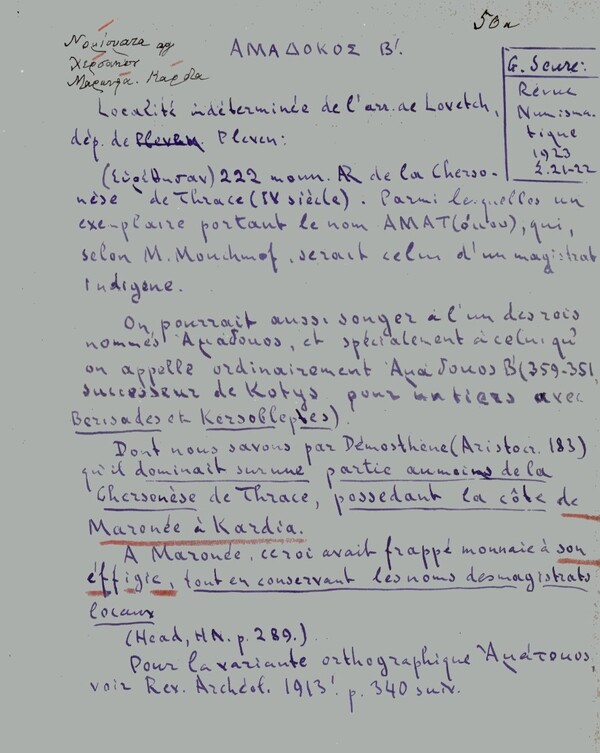 50α
Νομίσματα αρ
Χερσονήσου
Μαρωνεία. Καρδία
ΑΜΑΔΟΚΟΣ Β'.
G. Seure:
Revue
Numisma-
tique
1923
Σ.21-22
Localité indéterminée de l'arr. de Lovetch,
dép. de Pleven:
(Εὑρέθησαν) 222 monn. AR de la Cherso-
nèse de Thrace (IV siècle). Parmi lesquelles un
exemplaire portant le nom ΑΜΑΤ(όκου), qui,
selon M. Mouchmof, serait celui d'un magistrat
indigène.
On pourrait aussi songer à l'un des rois
nommés Ἀμάδοκος, et spécialement à celui qu'
on appelle ordinairement Ἀμάδοκος Β' (359-351,
successeur de Kotys pour un tiers avec
Berisades et Kersobleptes)
Dont nous savons par Démosthène (Aristocr. 183)
qu'il dominait sur une partie au moins de la
Chersonèse de Thrace, possedant la côte de
Maronée à Kardia.
A Maronée, ce roi avait frappé monnaie à son
éffigie, tout en conservant les noms des magistrats
locaux
(Head, HN. p. 289.)
Pour la variante orthographique Ἀμάτοκος,
voir Rev. Archéol. 1913' p. 340 suiv.